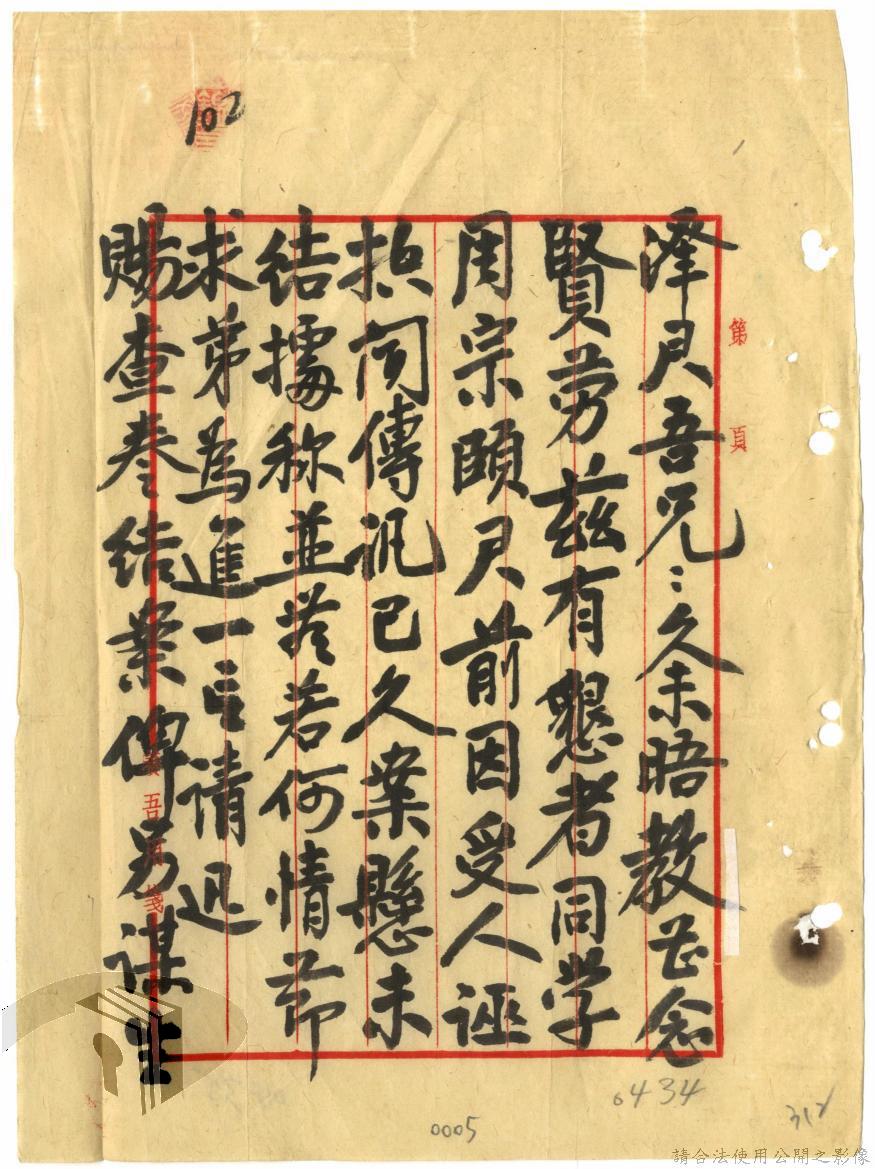 102
第 頁
澤民吾兄:久未晤教甚念
賢勞茲有懇者同学
周宗頤君前因受人誣
控聞傳訊已久案懸未
結據称並無若何情節
求弟為進一言請迅
賜查卷結案俾另謀生
吾
箋
0434
0005
312
請合法使用公開之影像